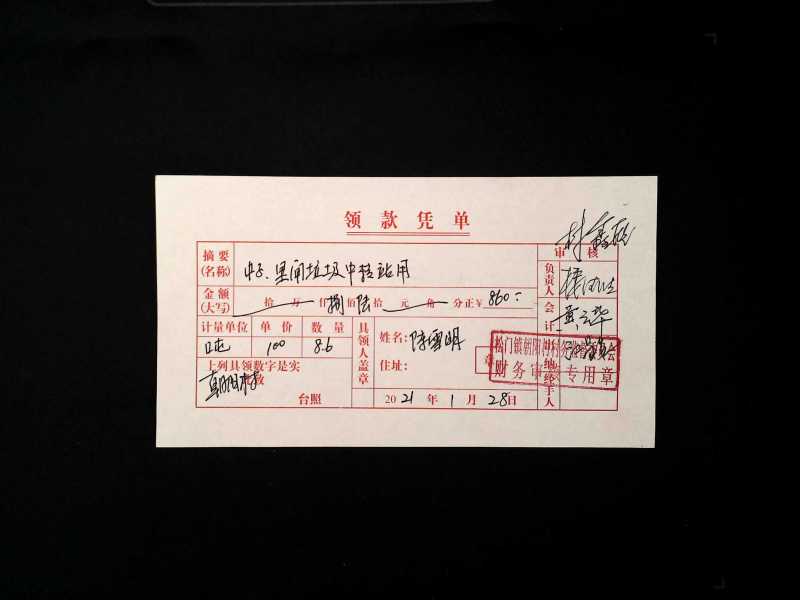 领款凭单
摘要
(名称)
里闸垃圾中转站用
审核
金额
(大写)
拾万仟捌佰陆拾元角分正¥860
负责人
会计
计量单位 单价 数量
吨 100 8.6
具领人盖章
姓名:陈雪明
住址:
章
出纳经手人
上列具领数字是实
此致
朝阳村
台照
2021年1月28日
松门镇朝阳村村务监督委员会
财务审核专用章